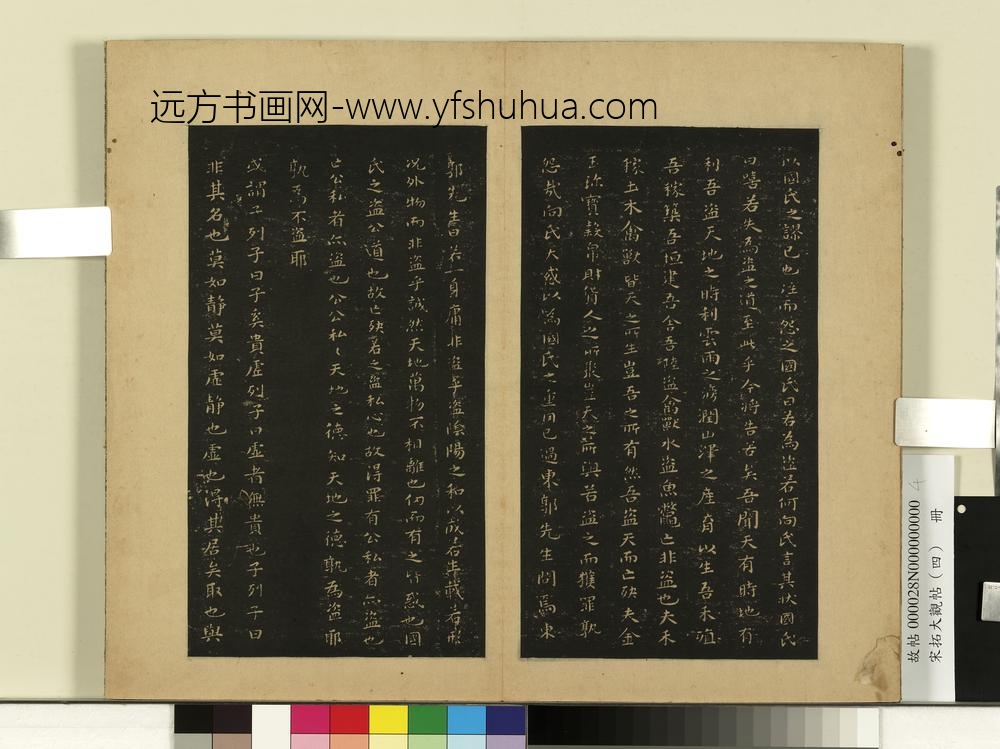 远方书画网-www.yfshuhua.com
以國氏之謬己也往而怨之國氏曰若為盜若何向氏言其狀國氏
曰嘻若失為盜之道至此乎今將告若矣吾聞天有時地有
利吾盜天地之時利雲雨之滂潤山澤之產育以生吾禾殖
吾稼築吾垣建吾舍吾陸盜禽獸水盜魚鱉亡非盜也夫禾
稼土木禽獸皆天之所生豈吾之所有然吾盜天而亡殃夫金
玉珍寶穀帛財貨人之所聚豈天之所與若盜之而獲罪孰
怨哉向氏大惑以為國氏之重罔己過東郭先生問焉東
郭先生曰若一身庸非盜乎盜陰陽之和以成若生載若形
況外物而非盜乎誠然天地萬物不相離也仞而有之皆惑也國
氏之盜公道也故亡殃若之盜私心也故得罪有公私者亦盜也
亡公私者亦盜也公公私〻天地之德知天地之德孰為盜耶
孰為不盜耶
或謂子列子曰子奚貴虛列子曰虛者無貴也子列子曰
非其名也莫如静莫如虛静也虛也得其居矣取也與
故帖 000028N000000000
宋拓大觀帖（四） 冊
4